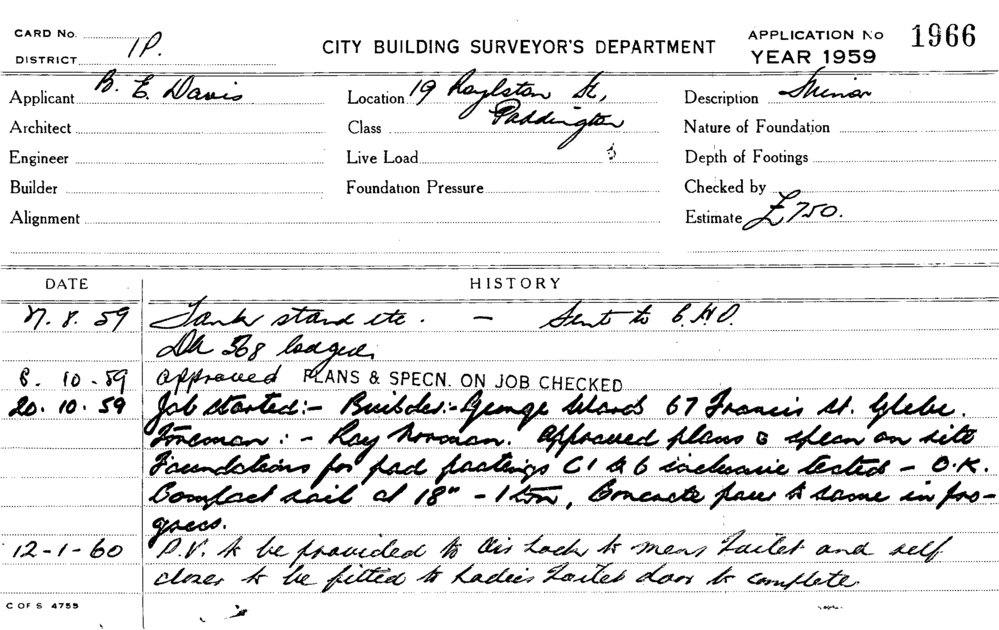 CARD No.
DISTRICT 1P.
CITY BUILDING SURVEYOR'S DEPARTMENT
APPLICATION No 1966
YEAR 1959
Applicant B. E. Davis
Location 19 Roylston St,
Paddington
Description Minor
Architect
Class
Nature of Foundation
Engineer
Live Load
Depth of Footings
Builder
Foundation Pressure
Checked by
Alignment
Estimate £750.
DATE HISTORY
8. 59 Tank stand etc. - Sent to C.H.O.
DA 568 lodged.
10-59 Approved PLANS & SPECN. ON JOB CHECKED
20.10.59 Job started:- Builder:- George 67 Francis St. Glebe.
Foreman:- Ray Norman. Approved plans & specn on site
Foundations for pad footings C1 to 6 inclusive tested - O.K.
Compact soil at 18" - 1 ton, Concrete pour to same in pro-
gress.
12-1-60 P.V. to be provided to air lock to mens toilet and self
closer to be fitted to Ladies toilet door to complete.
C OF S 4755